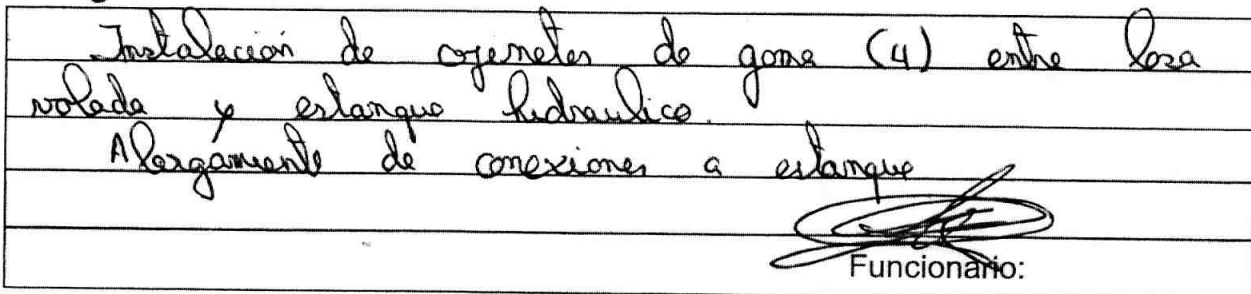 Instalacion de cojenetes de goma (4) entre loza
volada y estanque hidraulico.
Alargamiento de conexiones a estanque
Funcionario: